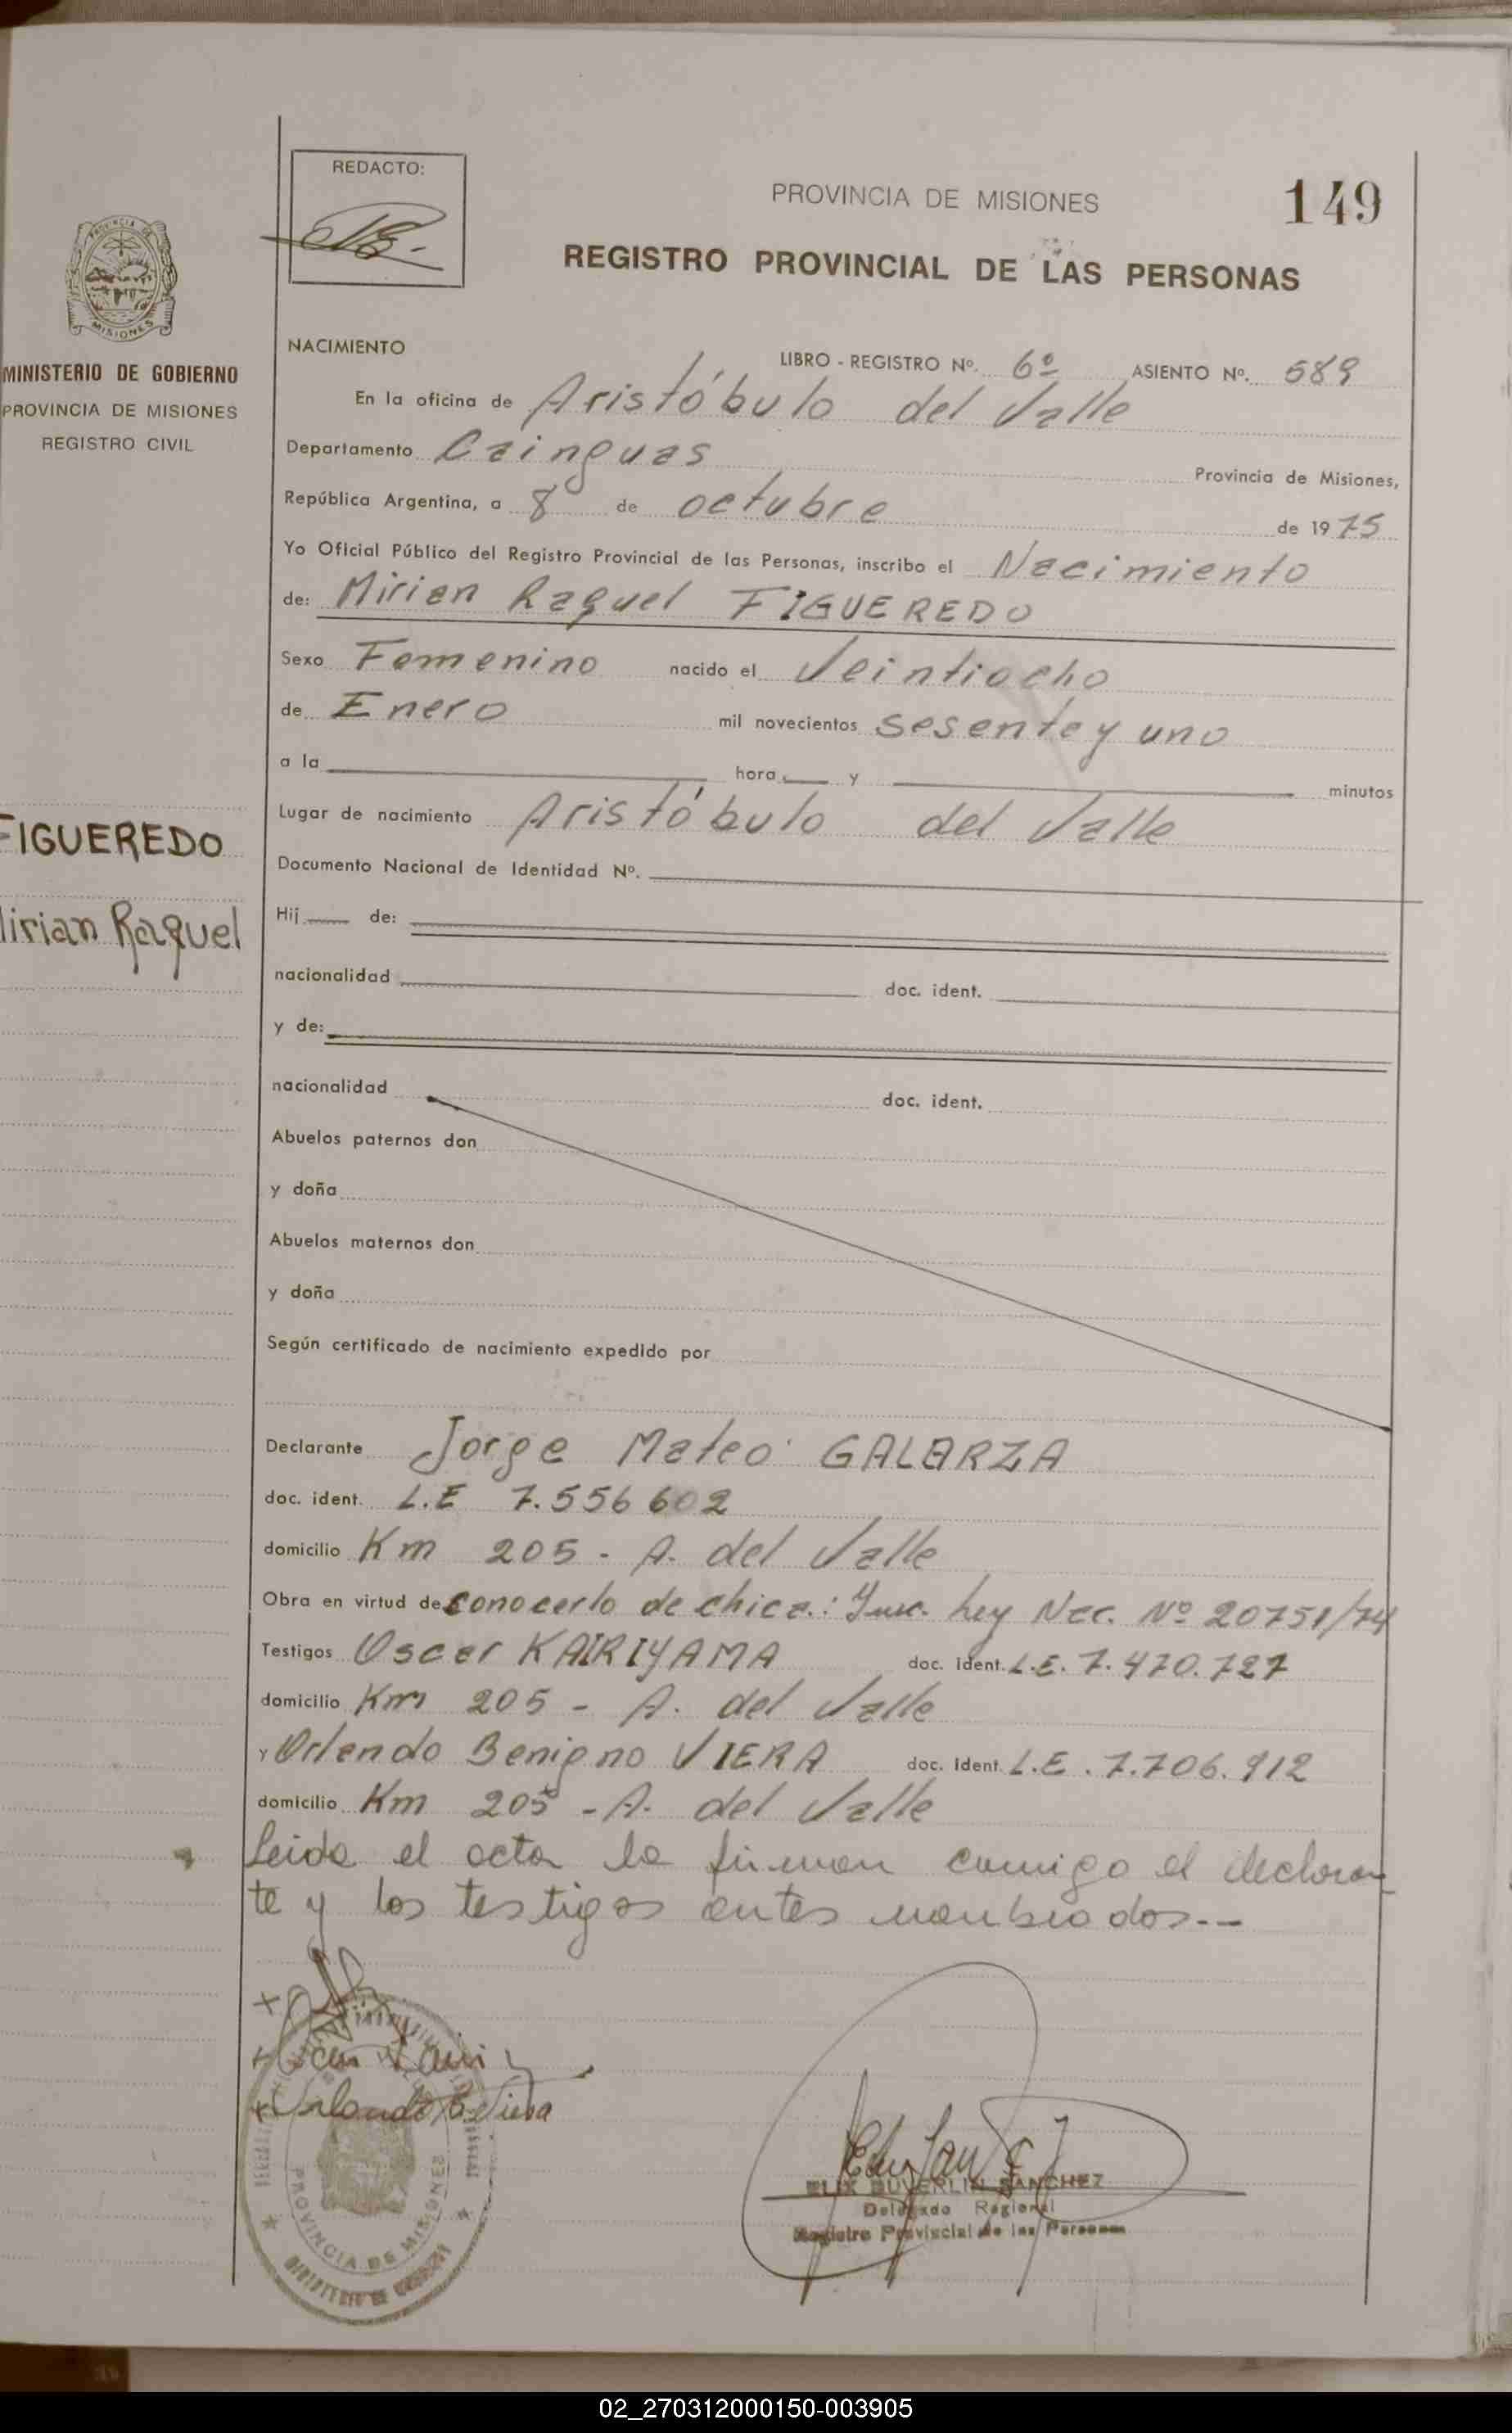 REDACTO:
PROVINCIA DE MISIONES
149
REGISTRO PROVINCIAL DE LAS PERSONAS
MISIONES
MINISTERIO DE GOBIERNO
PROVINCIA DE MISIONES
REGISTRO CIVIL
FIGUEREDO
Mirian Raquel
NACIMIENTO
LIBRO - REGISTRO Nº. 6º ASIENTO Nº. 589
En la oficina de Aristóbulo del Valle
Departamento Cainguas Provincia de Misiones,
República Argentina, a 8 de octubre de 1975
Yo Oficial Público del Registro Provincial de las Personas, inscribo el Nacimiento
de: Mirian Raquel FIGUEREDO
Sexo Femenino nacido el Veintiocho
de Enero mil novecientos sesenta y uno
a la hora y minutos
Lugar de nacimiento Aristóbulo del Valle
Documento Nacional de Identidad Nº.
Hij de:
nacionalidad doc. ident.
y de:
nacionalidad doc. ident.
Abuelos paternos don
y doña
Abuelos maternos don
y doña
Según certificado de nacimiento expedido por
Declarante Jorge Mateo GALARZA
doc. ident. L.E 7.556602
domicilio Km 205 - A. del Valle
Obra en virtud de conocerlo de chica.: Insc. Ley Nac. Nº 20751/74
Testigos Oscar KAIRIYAMA doc. ident. L.E. 7.470.727
domicilio Km 205 - A. del Valle
y Orlando Benigno VIERA doc. ident. L.E. 7.706.912
domicilio Km 205 - A. del Valle
Leida el acta la firman comigo el declaran
te y los testigos antes nombrados.--
Orlando B. Viera
PROVINCIA DE MISIONES
MINISTERIO DE GOBIERNO
ELIX DUVERLIN SANCHEZ
Delegado Regional
Registro Provincial de las Personas
02_270312000150-003905